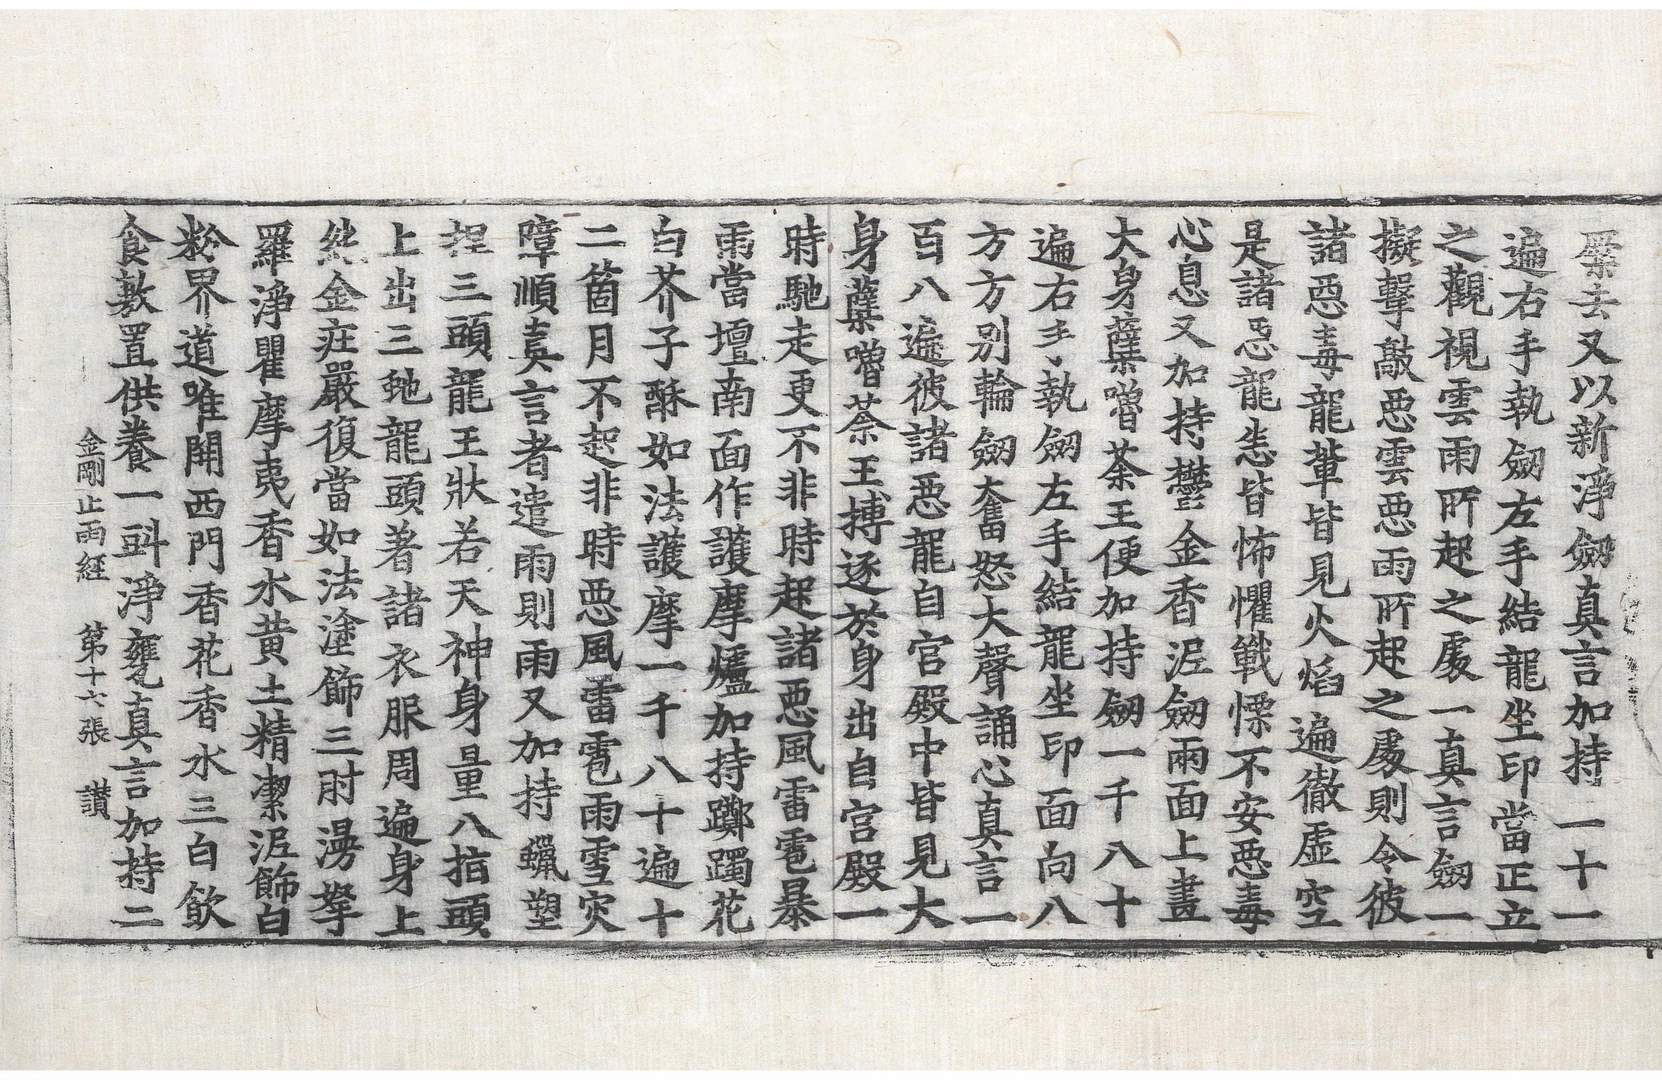 屎去又以新淨劒真言加持二十一
遍右手執劒左手結龍坐印當正立
之觀視雲雨所起之處一真言劒一
擬擊敲惡雲惡雨所起之處則令彼
諸惡毒龍輩皆見火焰遍徹虛空
是諸惡龍恙皆怖懼戰慄不安惡毒
心息又加持欝金香泥劒兩面上畫
大身櫱嚕荼王便加持劒一千八十
遍右手執劒左手結龍坐印面向八
方方別輪劒奮怒大聲誦心真言一
百八遍彼諸惡龍自宮殿中皆見大
身櫱嚕荼王搏逐於身出自宮殿一
時馳走更不非時起諸惡風雷雹暴
雨當壇南面作護摩爐加持躑躅花
白芥子酥如法護摩一千八十遍十
二箇月不起非時惡風雷雹雨雪灾
障順真言者遣雨則雨又加持蠟塑
捏三頭龍王狀若天神身量八指頭
上出三虵龍頭著諸衣服周遍身上
純金莊嚴復當如法塗飾三肘漫拏
羅淨瞿摩夷香水黃土精潔泥飾白
粉界道唯開西門香花香水三白飲
食敷置供養一㪷淨甕真言加持二
金剛止雨經　第十六張　讃